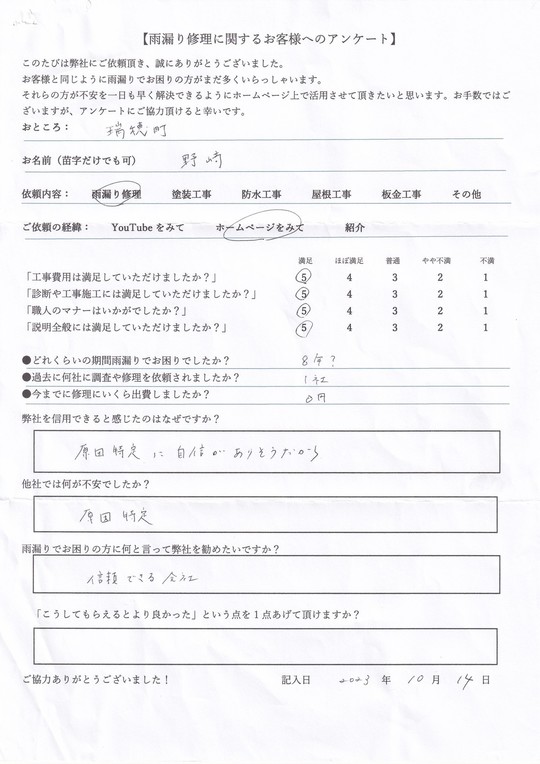 【雨漏り修理に関するお客様へのアンケート】
このたびは弊社にご依頼頂き、誠にありがとうございました。
お客様と同じように雨漏りでお困りの方がまだ多くいらっしゃいます。
それらの方が不安を一日も早く解決できるようにホームページ上で活用させて頂きたいと思います。お手数ではご
ざいますが、アンケートにご協力頂けると幸いです。
おところ： 瑞穂町
お名前（苗字だけでも可） 野崎
依頼内容： 雨漏り修理 塗装工事 防水工事 屋根工事 板金工事 その他
ご依頼の経緯： YouTubeをみて ホームページをみて 紹介
満足 ほぼ満足 普通 やや不満 不満
「工事費用は満足していただけましたか？」 5 4 3 2 1
「診断や工事施工には満足していただけましたか？」 5 4 3 2 1
「職人のマナーはいかがでしたか？」 5 4 3 2 1
「説明全般には満足していただけましたか？」 5 4 3 2 1
●どれくらいの期間雨漏りでお困りでしたか？ 8年？
●過去に何社に調査や修理を依頼されましたか？ 1社
●今までに修理にいくら出費しましたか？ 0円
弊社を信用できると感じたのはなぜですか？
原因特定に自信がありそうだから
他社では何が不安でしたか？
原因特定
雨漏りでお困りの方に何と言って弊社を勧めたいですか？
信頼できる会社
「こうしてもらえるとより良かった」という点を1点あげて頂けますか？
ご協力ありがとうございました！ 記入日 2023 年 10 月 14 日